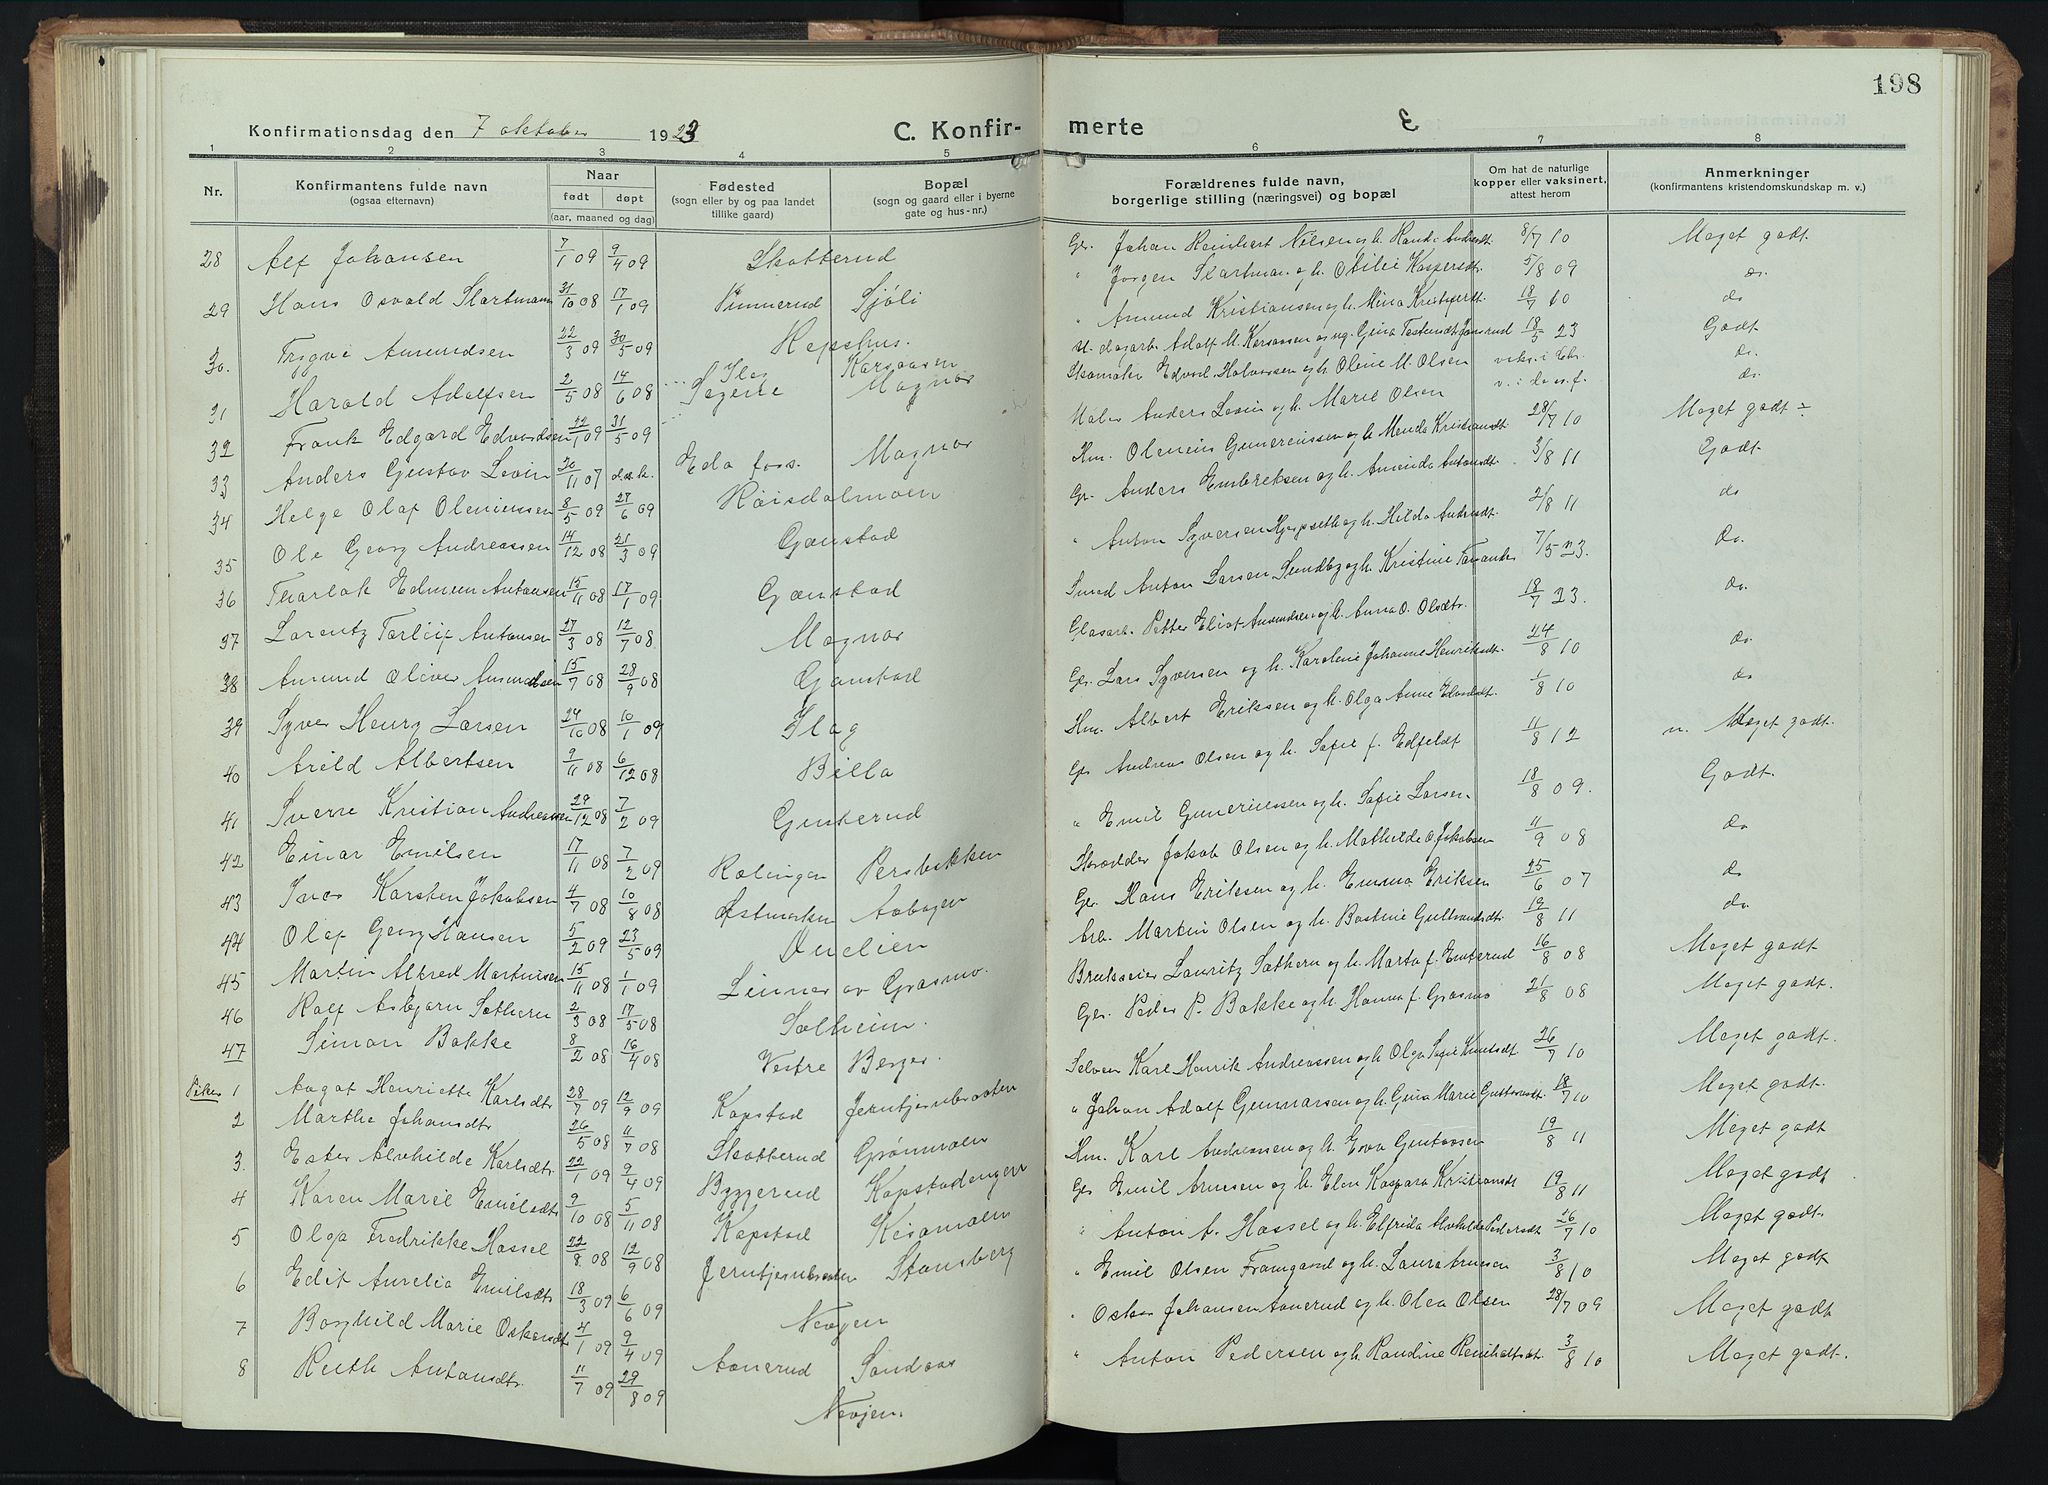 198
Konfirmationsdag den 7 oktober 1923
C. Konfir- merte
1 2 3 4 5 6 7 8
Nr.
Konfirmantens fulde navn
(ogsaa efternavn)
Naar
født døpt
(aar, maaned og dag)
Fødested
(sogn eller by og paa landet
tillike gaard)
Bopæl
(sogn og gaard eller i byerne
gate og hus-nr.)
Forældrenes fulde navn,
borgerlige stilling (næringsvei) og bopæl
Om hat de naturlige
kopper eller vaksinert,
attest herom
Anmerkninger
(konfirmantens kristendomskundskap m. v.)
28 Alf Johansen 7/1 09 9/4 09 Skotterud Gr. Johan Reinhert Nilsen og h. Randi 8/7 10 Meget godt.
29 Hans Osvald Slartmann 31/10 08 17/1 09 Pinnerud Sjöli " Jörgen Slartman og h. Otilie Kaspersdt. 5/8 09 do.
30. Trygve Amundsen 22/3 09 30/5 09 Repshus. " Amund Kristiansen og h. Mina 18/7 10 do
31 Harald Adolfsen 2/5 08 14/6 08 Slag Karsaasen Adolf M. Karsaasen og ug. Gina 18/5 23 Godt
32 Frank Edgard Edvardsen 31/5 09 Magnor Skomaker Edvard Halvorsen og h. Oline M. Olsen do.
33 Anders Gustav Levin 20/11 07 Eda foss. Magnor Maler Anders Levin og h. Marie Olsen do.
34 Helge Olaf Oleniussen 8/5 09 27/6 09 Röisdalmoen Hm. Olenius Gunerius­sen og h. Menda Kristiansdt. 28/7 10 Meget godt ÷
35 Ole Georg Andreassen 14/12 08 21/3 09 Gænstad Gr. Anders Embriksen og h. Amenda Antonsdt. 3/8 11 Godt
36 Tharlak Edmun Antonsen 15/11 08 17/1 09. Gænstad " Anton Syversen og h. Hilda 2/8 11 do
37 Lorentz Torleif Antonsen 27/3 08 12/7 08 Magnor Anton Larsen Sundby og h. Kristine 7/5 23. do.
38 Amund Oliver Amundsen 15/7 08 28/9 08 Gænstad Glasarb. Petter Eliot Amundsen og h. Anna O. Olsdtr. 18/7 23. do.
39 Syver Henry Larsen 24/10 08 10/1 09 Slag Gr. Lars Syversen og h. Karoline Johanne Henriksdt. 24/8 10 do.
40 Arild Albertsen 9/11 08 6/12 08 Billa Hm. Albert Eriksen og h. Olga Anne Edvardsdt. 1/8 10 do
41 Sverre Kristian Andreassen 29/12 08 7/2 09 Gusterud Gr. Andreas Olsen og h. Sofie f. Edfeldt 11/8 12 n. Meget godt.
42 Einar Emilsen 17/11 08 7/2 09 " Emil Gunerius­sen og h. Sofie Larsen 18/8 09. Godt.
43 Ivar Karsten Jokobsen 4/7 08 10/8 08 Rælingen Persbakken Skrædder Jokob Olsen og h. Mathilde O. Jokobsen 11/9 08 do
44 Olaf Georg Hansen 5/2 09 23/5 09 Østmarken Aabogen Gr. Hans Eriksen og h. Emma Eriksen 25/6 07 do
45 Martin Alfred Martinsen 15/11 08 1/1 09 Arb. Martin Olsen og h. Bastine Gulbrandsdtr. 19/8 11 do.
46 Rolf Asbjørn Sæthern 2/3 08 17/5 08 Linner av Grasmo. Brukseier Lauritz Sæthern og h. Marta f. Emterud 16/8 08 Meget godt
47 Simon Bakke 8/2 08 16/4 08 Solheim. Gr. Peder P. Bakke og h. Hanna f. Grasmo 21/8 08 Meget godt.
Piker 1 Aagot Henriette Karlsdtr 28/7 09 12/9 09 Vestre Berger. Selveier Karl Henrik Andreassen og h. Olga Sofie Knutsdt 26/7 10 Meget godt.
2 Marthe Johansdtr 26/5 08 11/7 08 Kapstad " Johan Adolf Gunnarsen og h. Gina Marie 18/7 10 Meget godt.
3. Ester Alvhilde Karlsdtr. 22/1 09 9/4 09 Skotterud Grønmoen Hm. Karl Andreassen og h. Eva Gustavsen 19/8 11 Meget godt
4 Karen Marie Emilsdtr 9/10 08 5/11 08 Byggerud Kapstadengen Gr. Emil Arnesen og h. Elen Kaspara Kristiansdt 19/8 11 Meget godt
5 Olga Fredrikke Hassel 22/8 08 12/9 08 Kapstad " Anton A. Hassel og h. Elfrida Alvhilde Pedersdt 26/7 10 Meget godt.
6 Edit Aurelia Emilsdtr 18/3 09 6/6 09 Stensberg " Emil Olsen Framgaard og h. Laura Arnesen 3/8 10 Meget godt
7 Borghild Marie Oskarsdtr 4/1 09 9/4 09 Nevjen " Oskar Johansen Aanerud og h. Olea Olsen 28/7 09 Meget godt
8 Ruth Antonsdtr. 11/7 09 29/8 09 Aanerud Sandaas " Anton Pedersen og h. Randine 3/8 10 Meget godt.
Nevjen.